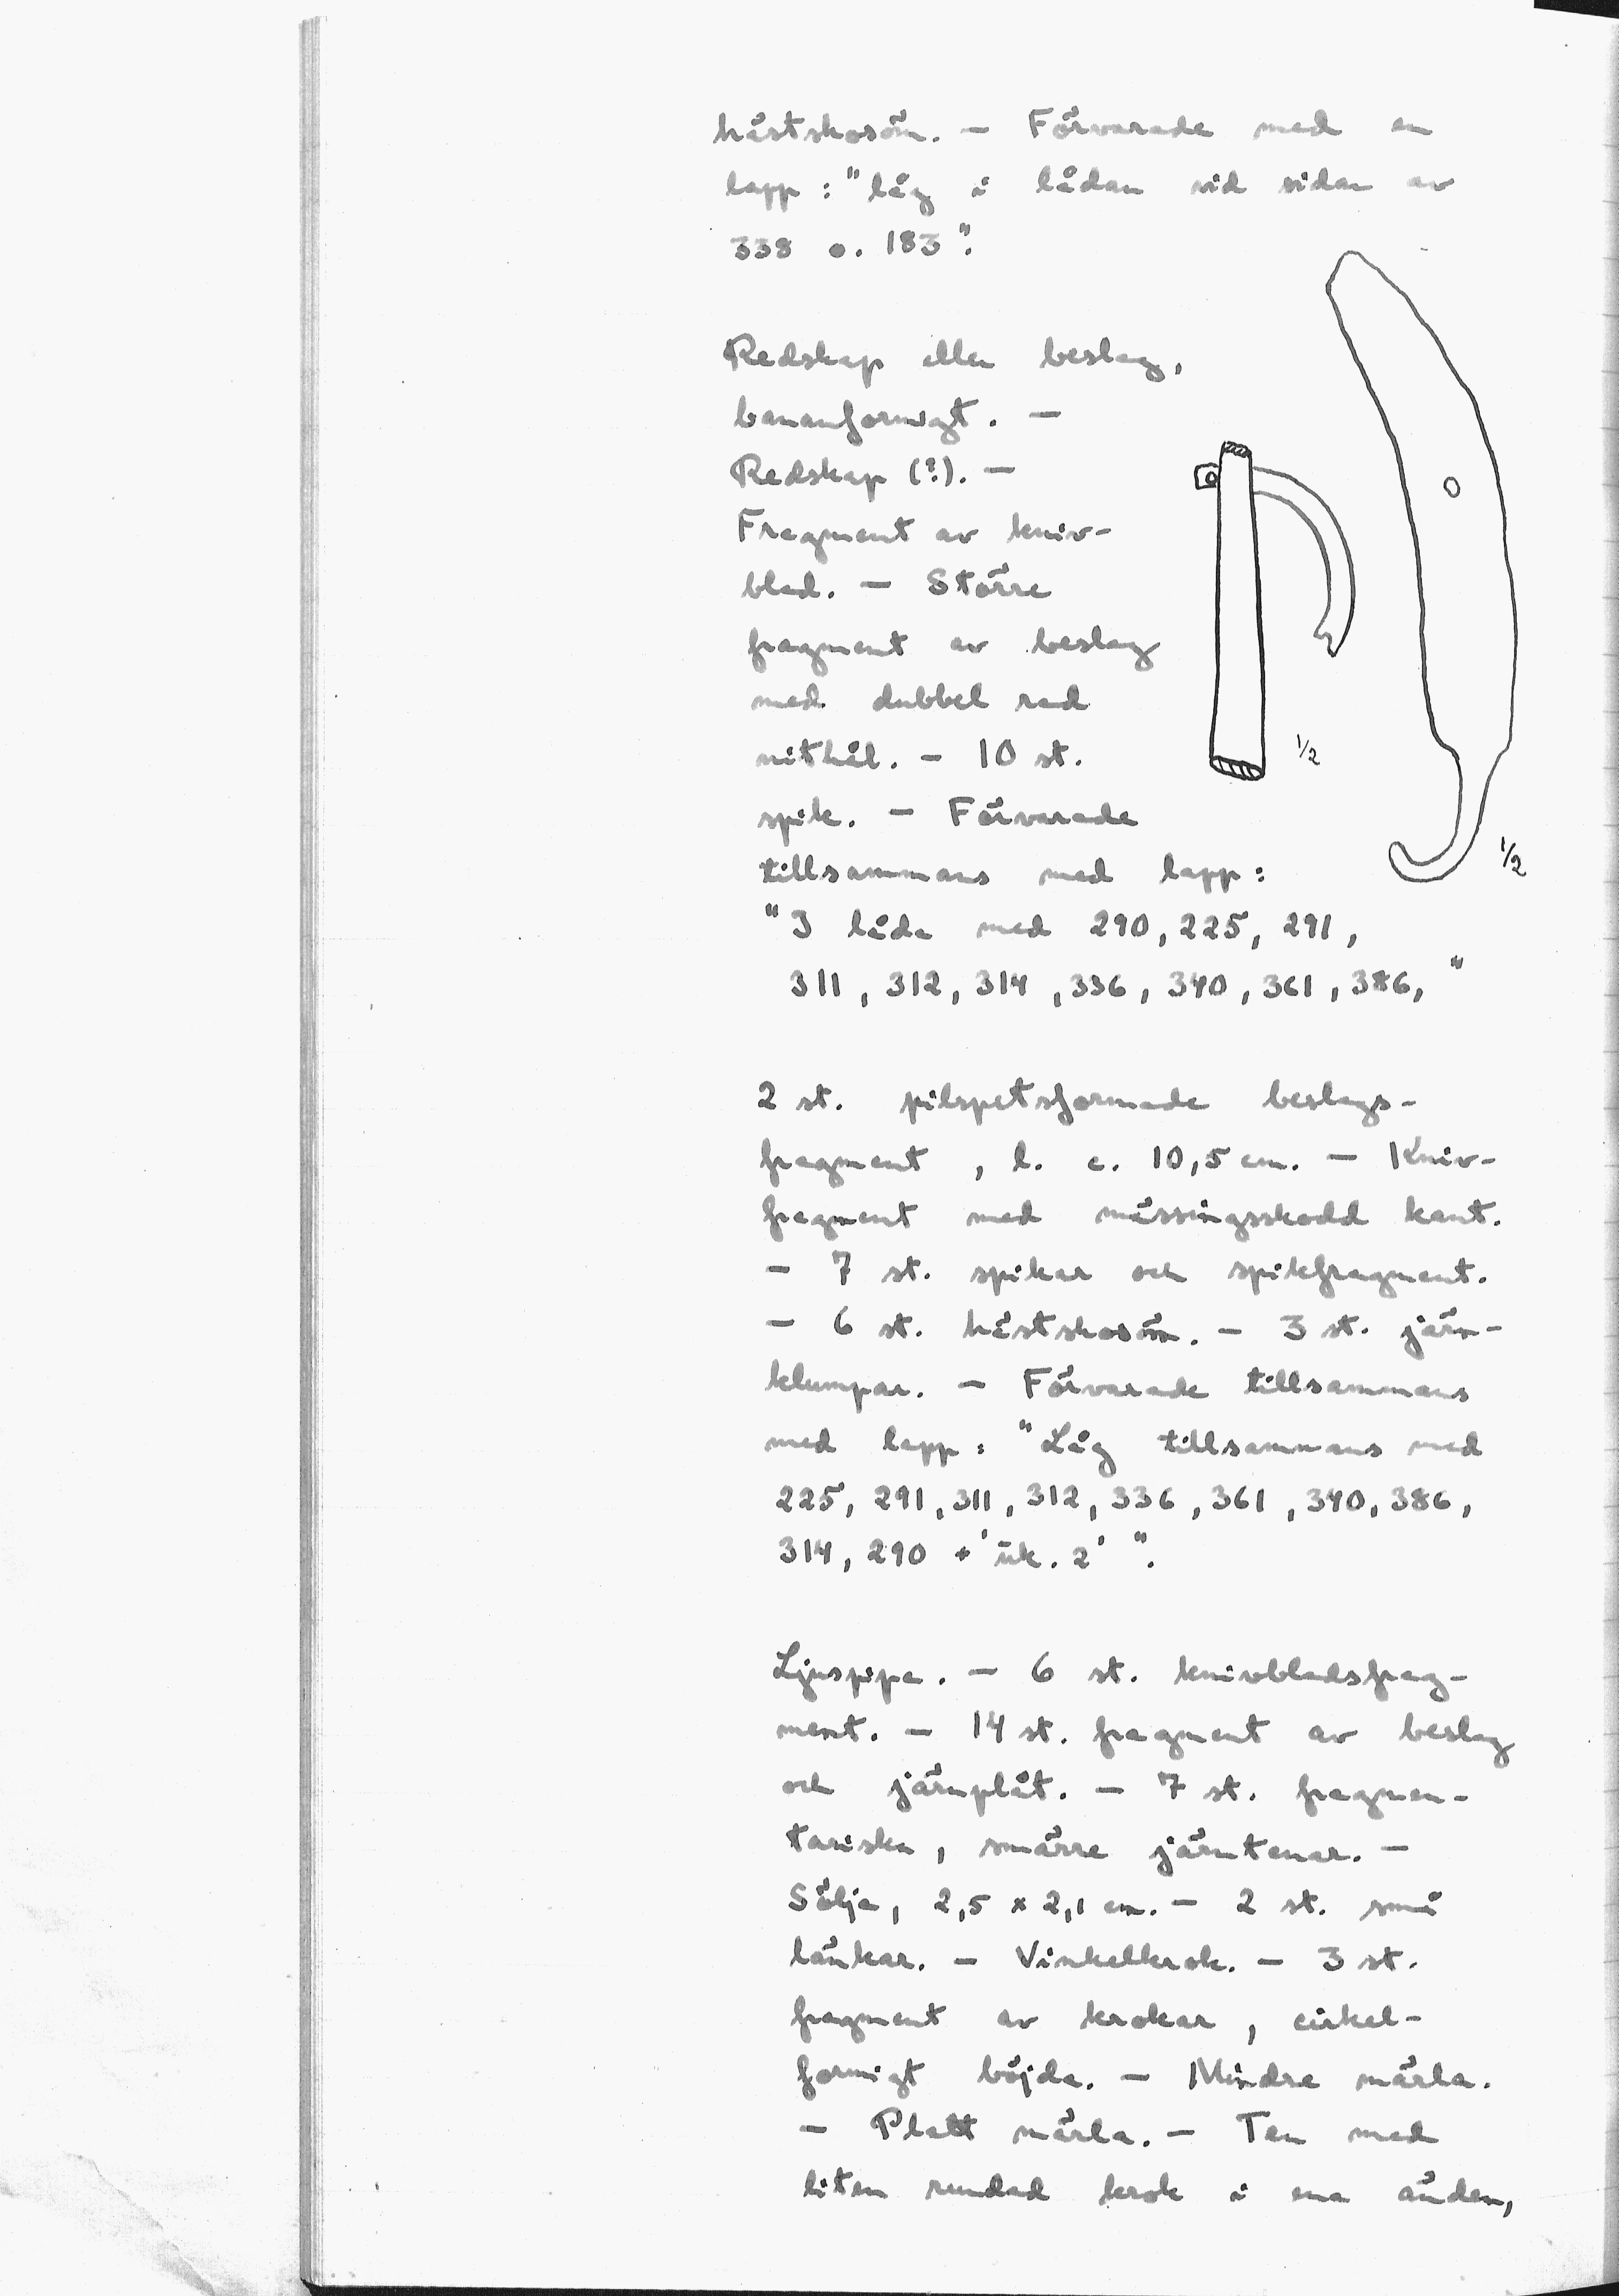 hästskosöm. — Förvarade med en
lapp: "låg i lådan vid sidan av
338 o. 183".
Redskap eller beslag,
bananformigt. —
Redskap (?). —
Fragment av kniv-
blad. — Större
fragment av beslag
med dubbel rad
nithål. — 10 st.
spik. — Förvarade
tillsammans med lapp:
"I låda med 290, 225, 291,
311, 312, 314, 336, 340, 361, 386, "
1/2
1/2
2 st. pilspetsformade beslags-
fragment, l. c. 10,5 cm. — Kniv-
fragment med mässingsskodd kant.
— 7 st. spikar och spikfragment.
— 6 st. hästskosöm. — 3 st. järn-
klumpar. — Förvarade tillsammans
med lapp: "Låg tillsammans med
225, 291, 311, 312, 336, 361, 340, 386,
314, 290 + 'uk. 2' ".
Ljuspipa. — 6 st. knivbladsfrag-
ment. — 14 st. fragment av beslag
och järnplåt. — 7 st. fragmen-
tariska, smärre järntenar. —
Sölja, 2,5 x 2,1 cm. — 2 st. små
länkar. — Vinkelkrok. — 3 st.
fragment av krokar, cirkel-
formigt böjda. — Mindre märla.
— Platt märla. — Ten med
liten rundad krok i ena änden,